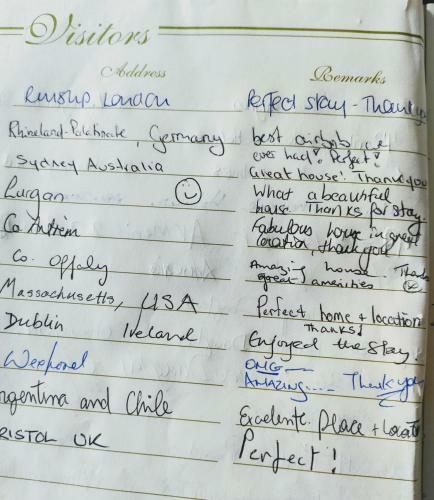 Visitors
Address Remarks
Ruislip London Perfect stay - Thank you
Rhineland-Palatinate, Germany best airbnb we
ever had! Perfect!
Sydney Australia Great house! Thank you
Lurgan What a beautiful
house. Thanks for stay.
Co. Antrim Fabulous house in great
location, thank you
Co. Offaly Amazing house. Thanks
great amenities
Massachusetts, USA Perfect home + location
Thanks!
Dublin Ireland Enjoyed the stay!
OMG
AMAZING.... Thank you
Argentina and Chile Excelente place + Locat
RISTOL UK Perfect!